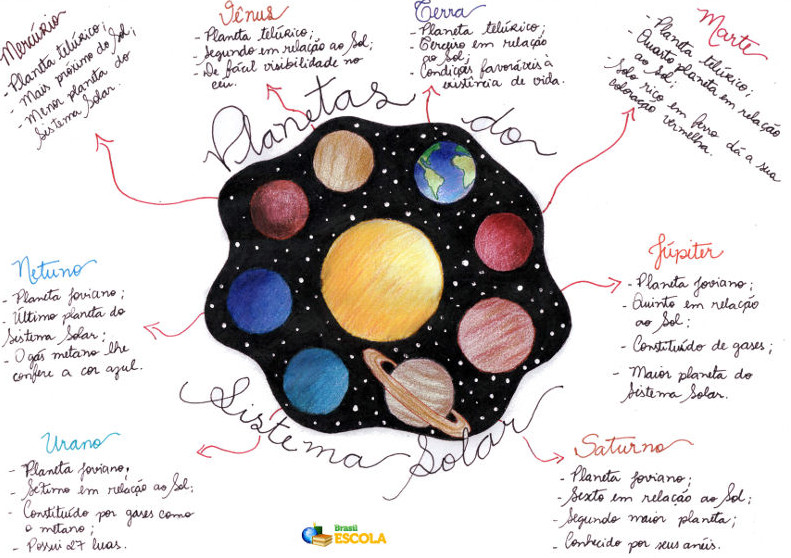 Mercúrio
- Planeta telúrico;
- Mais próximo do Sol;
- Menor planeta do
Sistema Solar.
Vênus
- Planeta telúrico;
- Segundo em relação ao Sol;
- De fácil visibilidade no
céu.
Terra
- Planeta telúrico;
- Terceiro em relação
ao Sol;
- Condições favoráveis à
existência de vida.
Marte
- Planeta telúrico;
- Quarto planeta em relação
ao Sol;
- Solo rico em ferro dá a sua
coloração vermelha.
Planetas do
Sistema Solar
Netuno
- Planeta joviano;
- Último planeta do
Sistema Solar;
- O gás metano lhe
confere a cor azul.
Júpiter
- Planeta joviano;
- Quinto em relação
ao Sol;
- Constituído de gases;
- Maior planeta do
Sistema Solar.
Urano
- Planeta joviano;
- Sétimo em relação ao Sol;
- Constituído por gases como
o metano;
- Possui 27 luas.
Saturno
- Planeta joviano;
- Sexto em relação ao Sol;
- Segundo maior planeta;
- Conhecido por seus anéis.
Brasil
ESCOLA